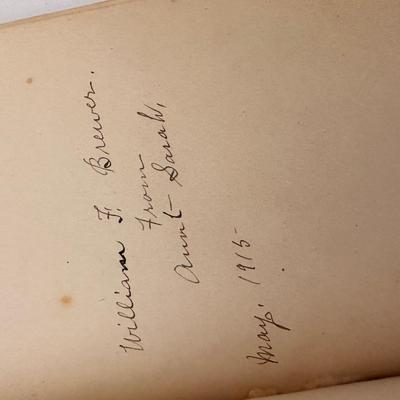 William F. Brewer.
From
Aunt Sarah,
May. 1915